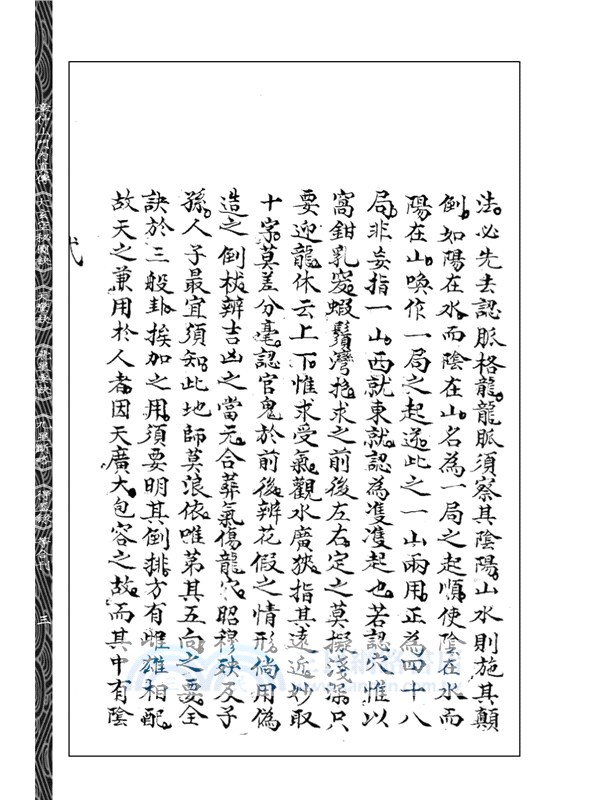 法。必先去認脈格龍。龍脈須察其陰陽。山水則施其顛
倒。如陽在水而陰在山。名為一局之起順。使陰在水而
陽在山。喚作一局之起逆。此之一山兩用。正為四十八
局。非妄指一山。西就東就。認為隻隻起也。若認穴惟以
窩鉗乳突。蝦鬚灣抱。求之前後左右。定之莫擬淺深。只
要迎龍休云上下。惟求受氣。觀水廣狹。指其遠近。妙取
十字。莫差分毫。認官鬼於前後。辨花假之情形。倘用偽
造之倒杖。辨吉凶之當元。合葬氣傷龍穴。昭穆殃及子
孫。人子最宜須知。此地師莫浪依。唯第其五向之要。全
訣於三般卦。挨加之用。須要明其倒排。方有雌雄相配。
故天之兼用於人者。因天廣大。包容之故。而其中有陰
三